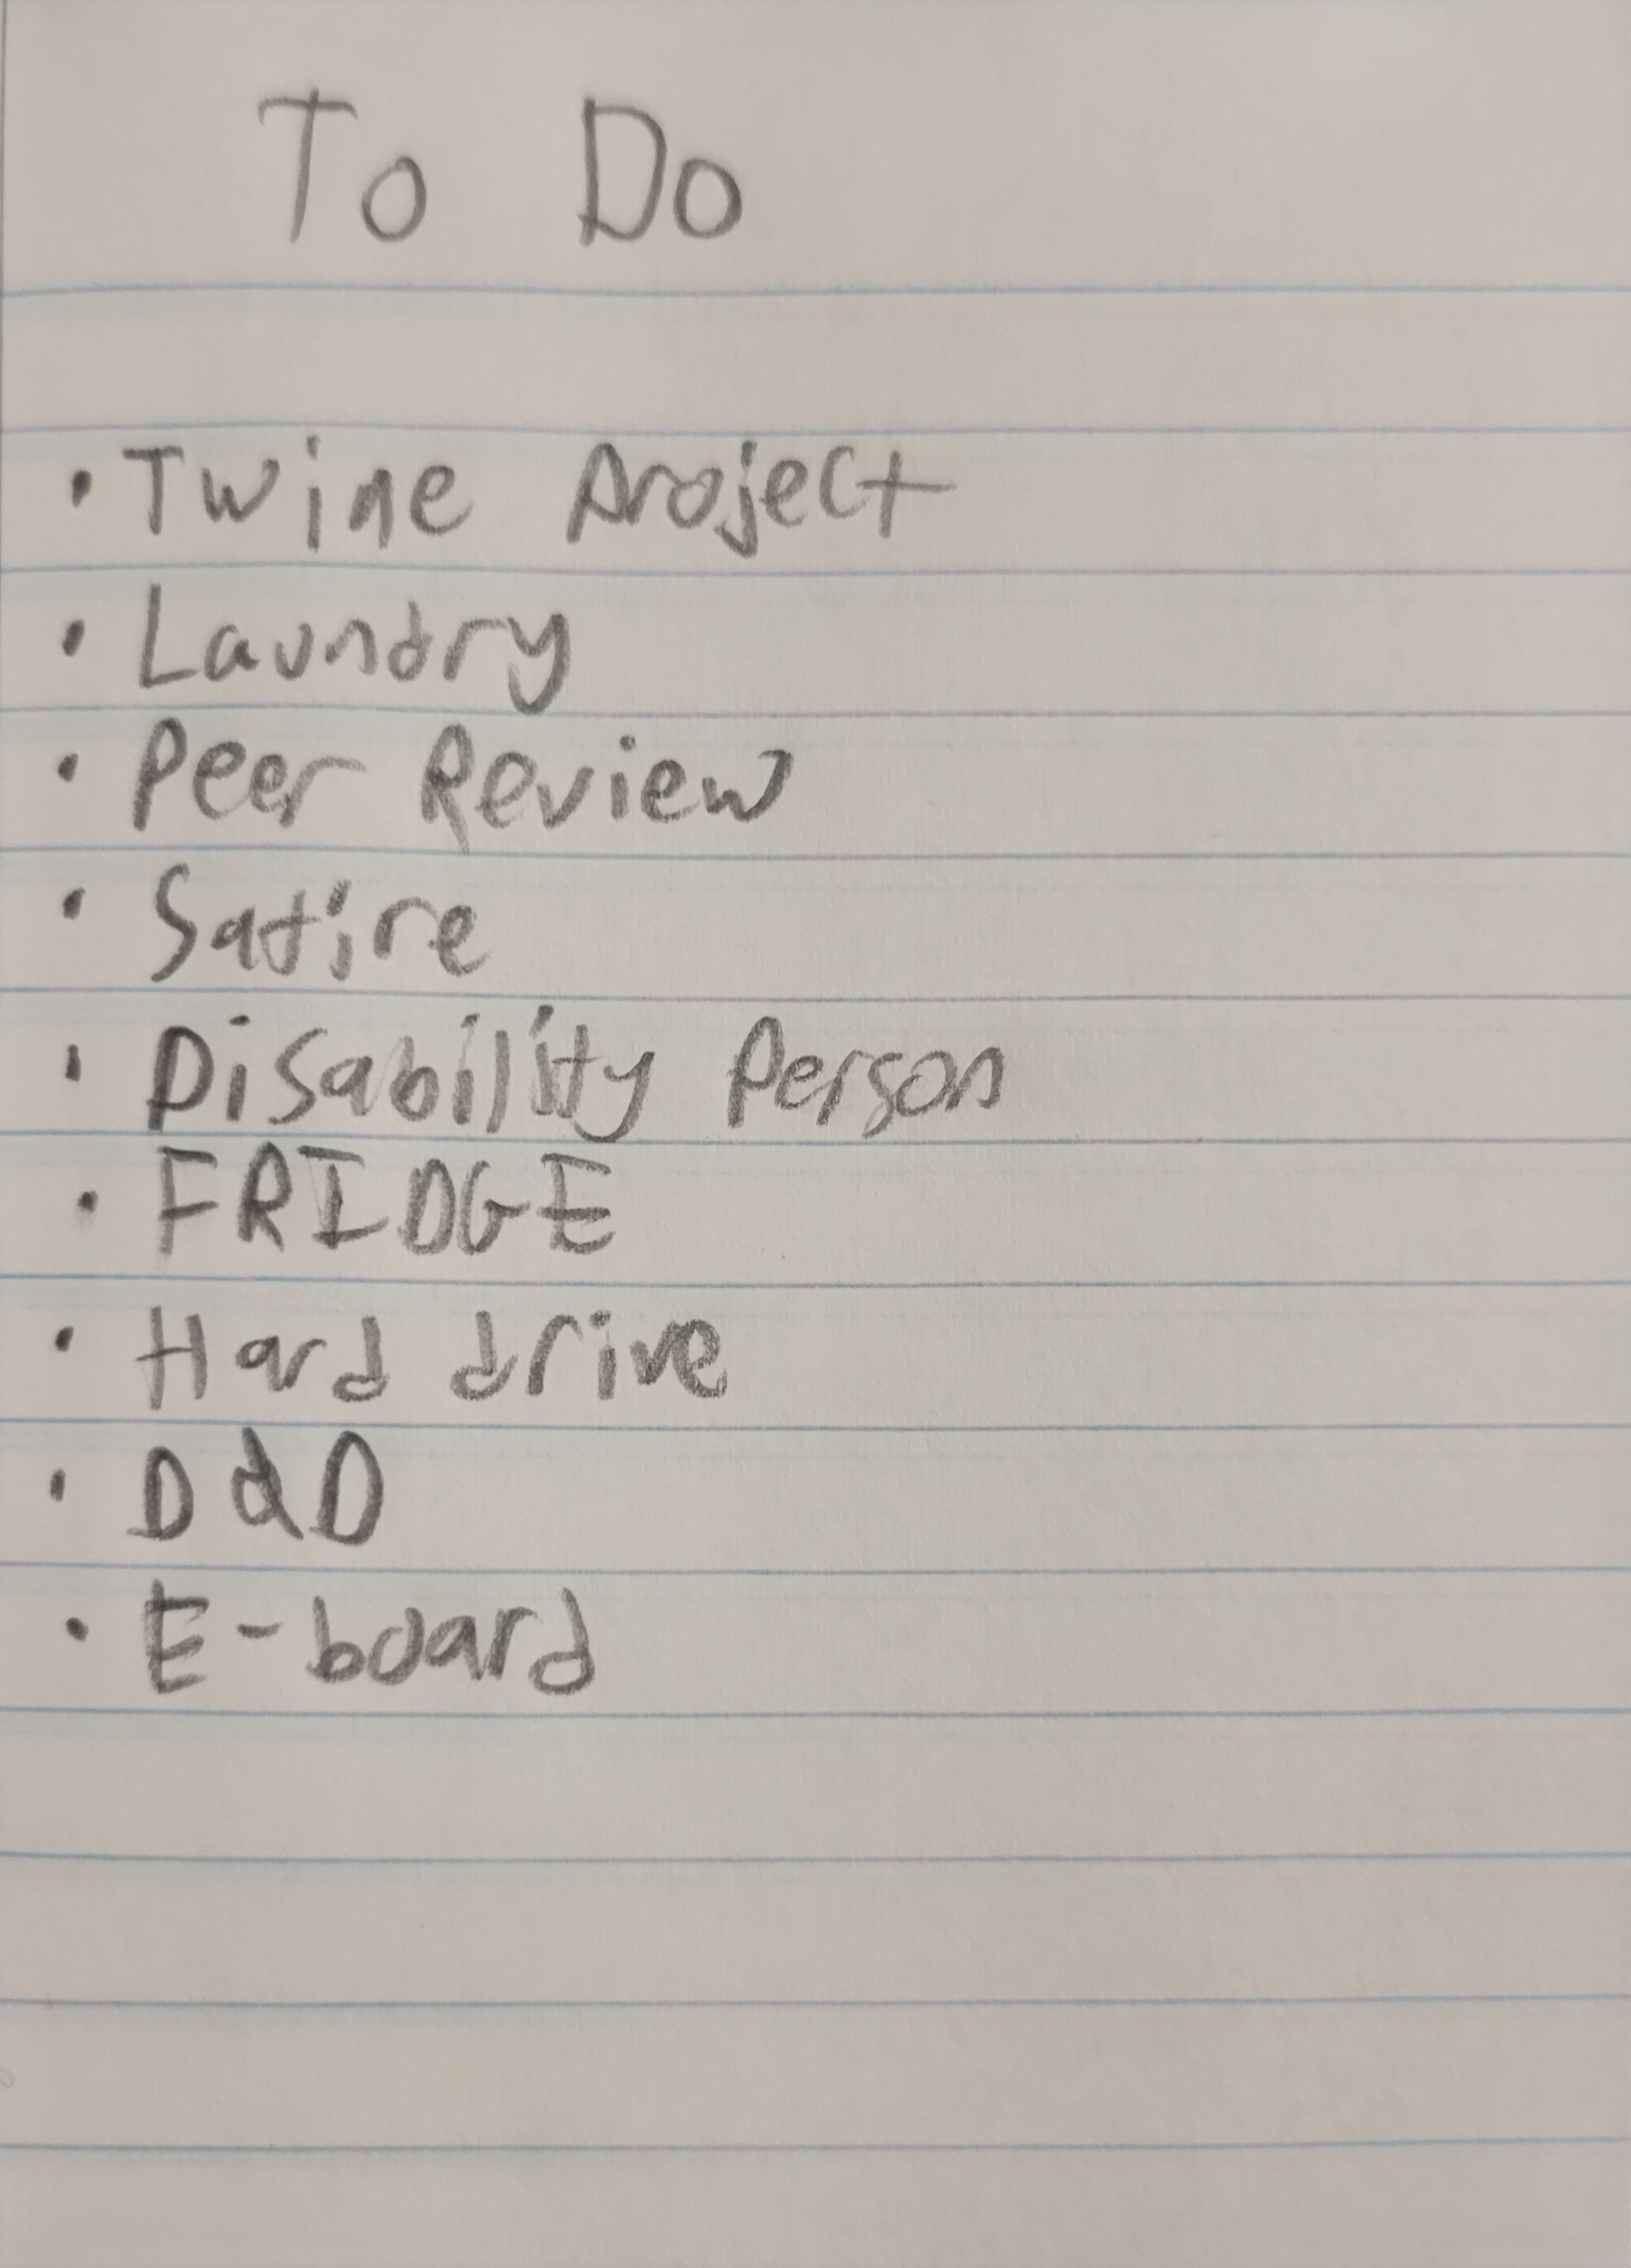 To Do
• Twine Project
• Laundry
• Peer Review
• Satire
• Disability Person
• FRIDGE
• Hard drive
• D&D
• E-board